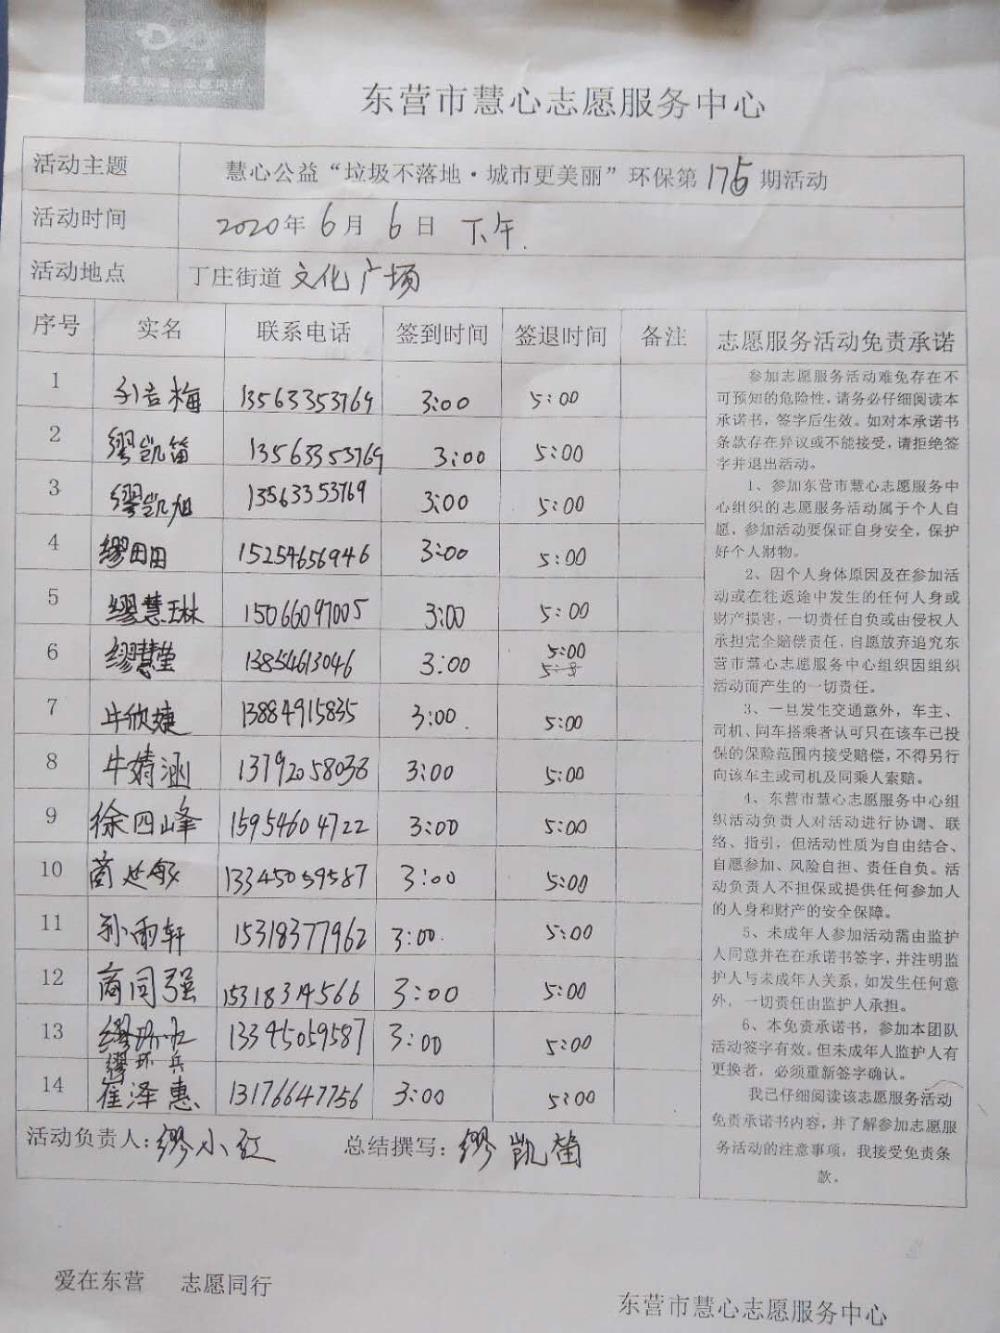 东营市慧心志愿服务中心
活动主题 慧心公益“垃圾不落地·城市更美丽”环保第175期活动
活动时间 2020年6月6日 下午.
活动地点 丁庄街道 文化广场
序号 实名 联系电话 签到时间 签退时间 备注 志愿服务活动免责承诺
1 13563353769 3:00 5:00
2 缪凯笛 13563353769 3:00 5:00
3 缪凯旭 13563353769 3:00 5:00
4 缪田田 15254656946 3:00 5:00
5 缪慧琳 15066097005 3:00 5:00
6 缪慧莹 13854613046 3:00 5:00
7 牛欣婕 13884915835 3:00 5:00
8 牛婧涵 13792058038 3:00 5:00
9 徐四峰 15954604722 3:00 5:00
10 商延敏 13345059587 3:00 5:00
11 孙雨轩 15318377962 3:00. 5:00
12 商同强 15318314566 3:00 5:00
13 13345059587 3:00 5:00
缪环兵
14 崔泽惠 13176647756 3:00 5:00
活动负责人:缪小红 总结撰写:缪凯笛
参加志愿服务活动难免存在不
可预知的危险性，请务必仔细阅读本
承诺书，签字后生效。如对本承诺书
条款存在异议或不能接受，请拒绝签
字并退出活动。
1、参加东营市慧心志愿服务中
心组织的志愿服务活动属于个人自
愿，参加活动要保证自身安全，保护
好个人财物。
2、因个人身体原因及在参加活
动或在往返途中发生的任何人身或
财产损害，一切责任自负或由侵权人
承担完全赔偿责任，自愿放弃追究东
营市慧心志愿服务中心组织因组织
活动而产生的一切责任。
3、一旦发生交通意外，车主、
司机、同车搭乘者认可只在该车已投
保的保险范围内接受赔偿，不得另行
向该车主或司机及同乘人索赔。
4、东营市慧心志愿服务中心组
织活动负责人对活动进行协调、联
络、指引，但活动性质为自由结合、
自愿参加、风险自担、责任自负。活
动负责人不担保或提供任何参加人
的人身和财产的安全保障。
5、未成年人参加活动需由监护
人同意并在在承诺书签字，并注明监
护人与未成年人关系，如发生任何意
外，一切责任由监护人承担。
6、本免责承诺书，参加本团队
活动签字有效。但未成年人监护人有
更换者，必须重新签字确认。
我已仔细阅读该志愿服务活动
免责承诺书内容，并了解参加志愿服
务活动的注意事项，我接受免责条
款。
爱在东营 志愿同行
东营市慧心志愿服务中心